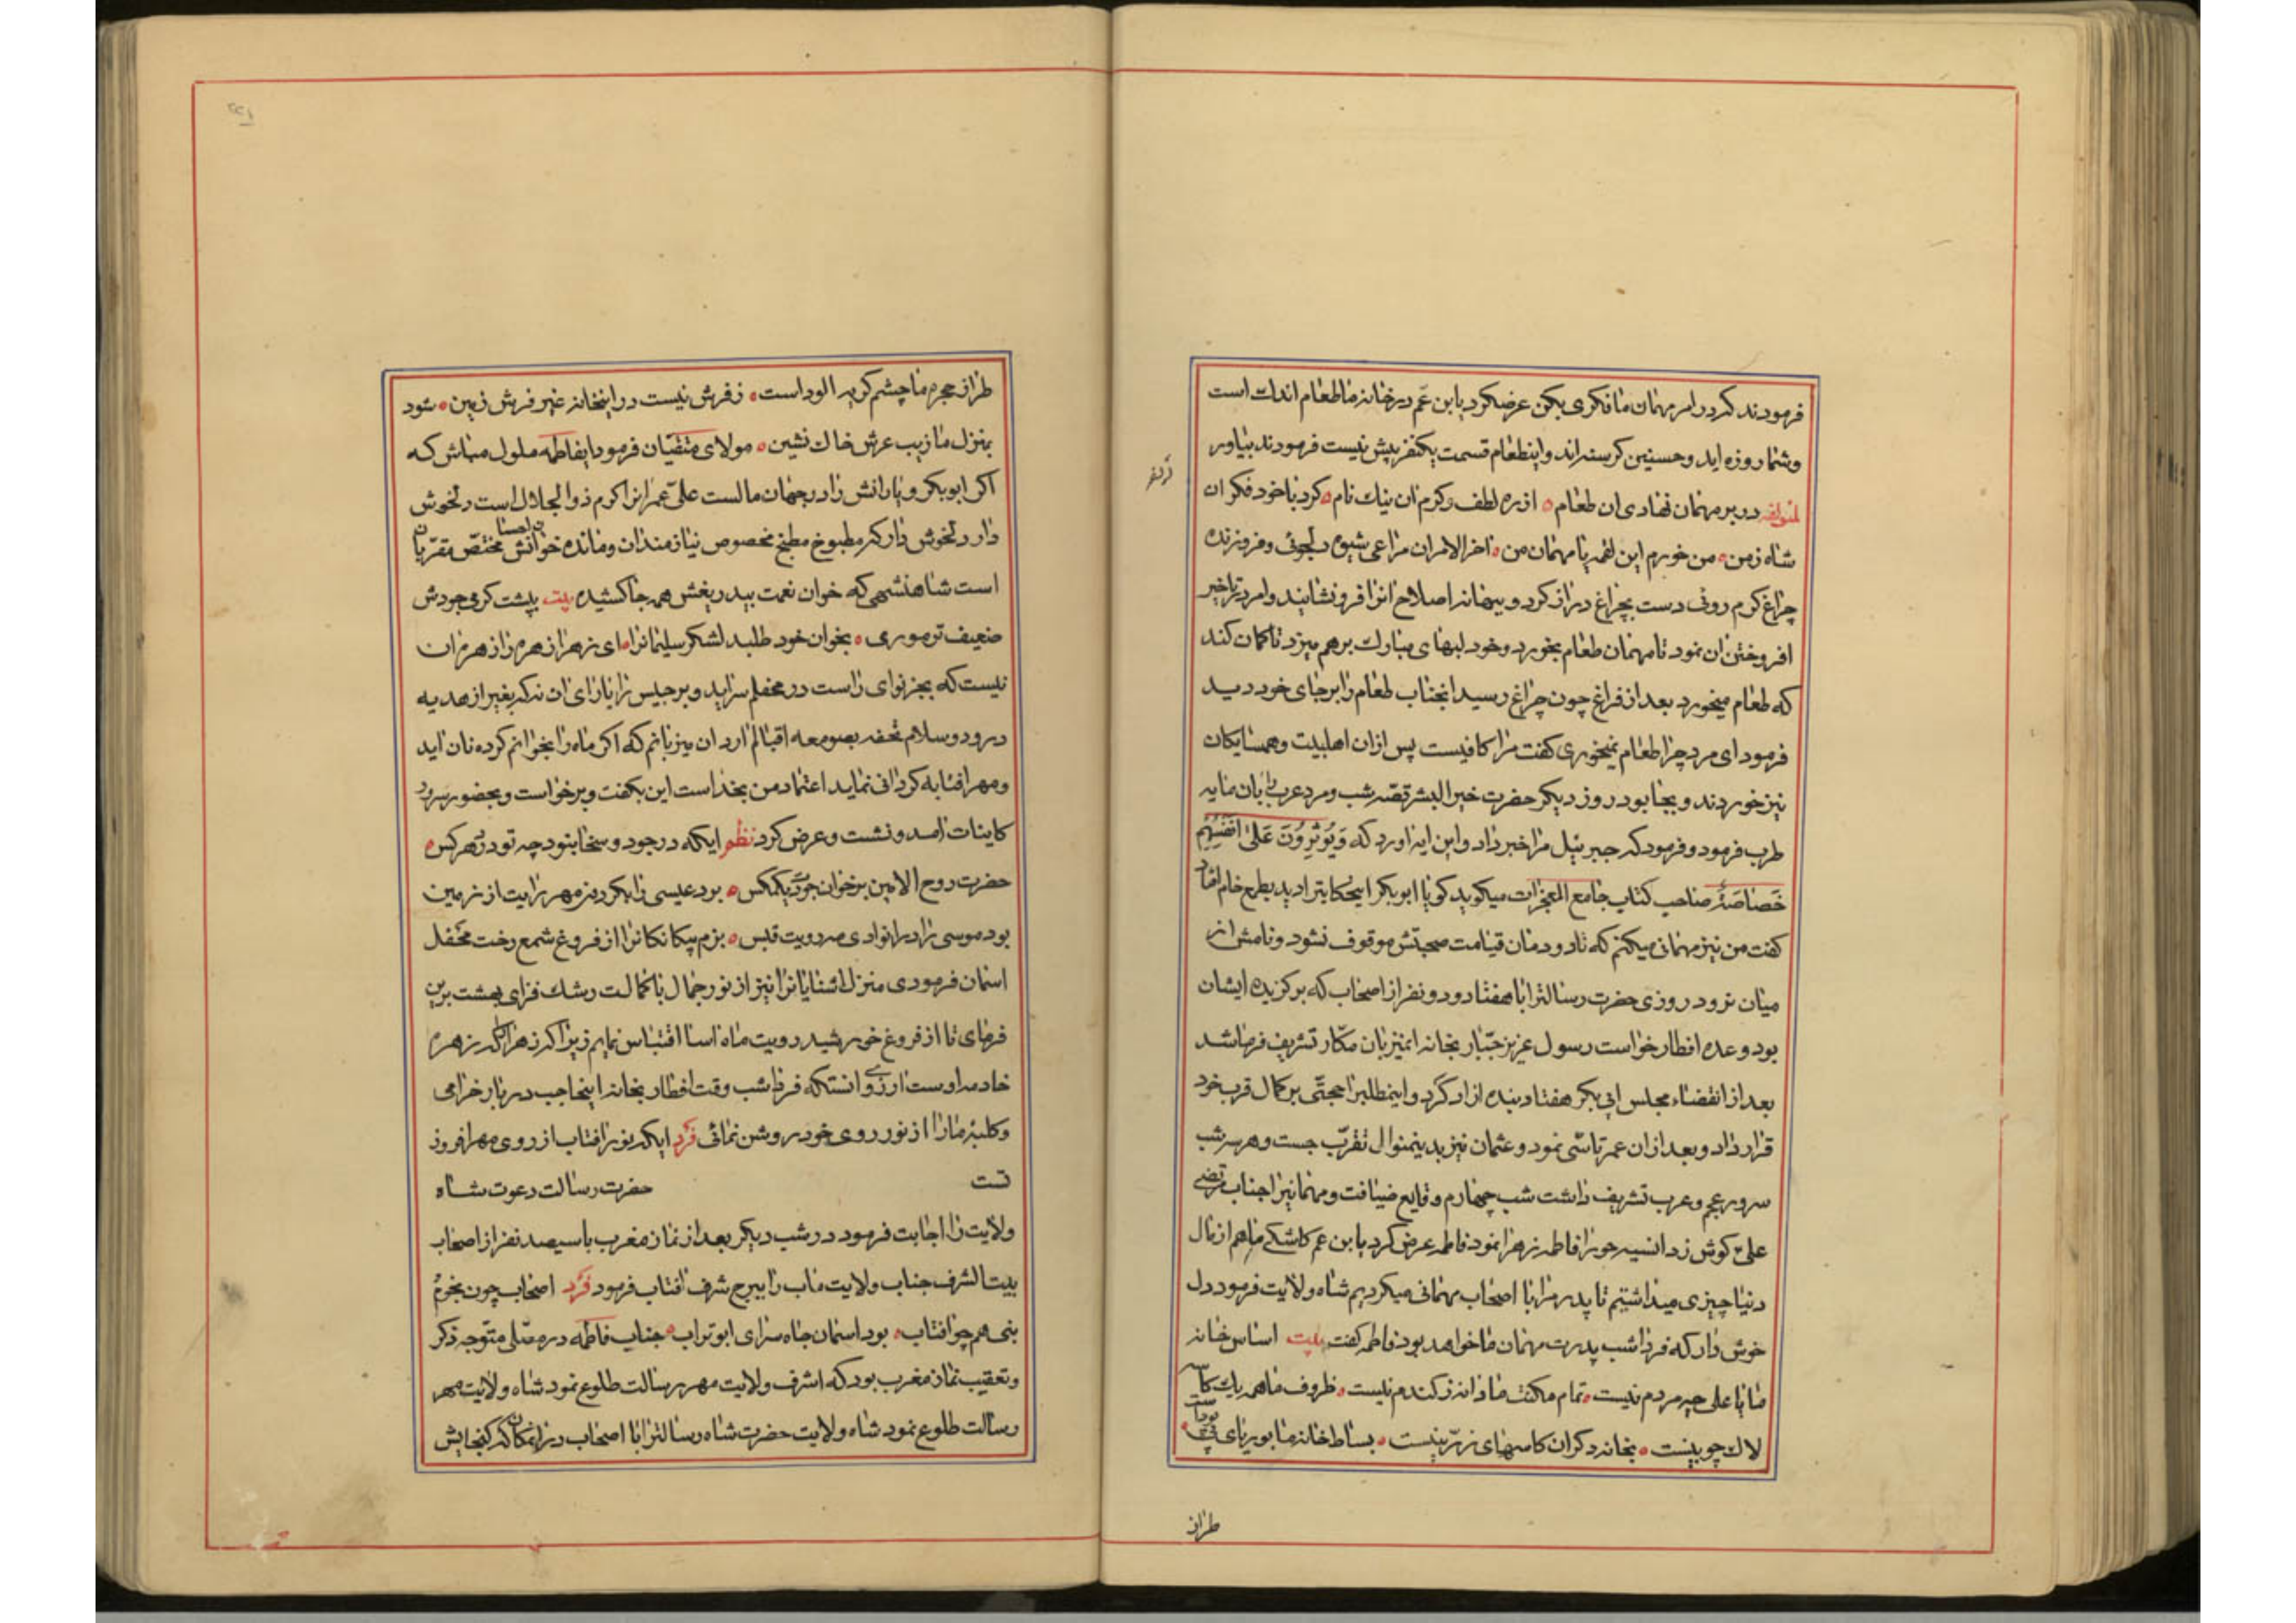 فرمودند که در امر مهمان ما فکری بکن عرضکرد یا بن عم در خانه ما طعام اندک است
و شما روزه اید و حسنین کرسنه اند و اینطعام قسمت یکنفر بیش نیست فرمودند بیاور
لمولفه در بر مهمان نهادی ان طعام از ره لطف و کرم ان نیک نام کرد با خود فکر ان
شاه زمن من خورم این لقمه یا مهمان من اخر الامر ان مراعی شیوه دلجوئی و فروزنده
چراغ کرم رونی دست بچراغ دراز کرد و ببهانه اصلاح انرا فرو نشانید و امر بتاخیر
افروختن ان نمود تا مهمان طعام بخورد و خود لبهای مبارک برهم میزد تا کمان کند
که طعام میخورد بعد از فراغ چون چراغ رسید انجناب طعام را بر جای خود دید
فرمود ای مرد چرا طعام نمیخوری کفت مرا کافیست پس ازان اهلبیت و همسایکان
نیز خوردند و بجا بود روز دیکر حضرت خیر البشر قصه شب و مرد عرب
طرب فرمود و فرمود که جبرئیل مرا خبر داد و این ایه اورد که وَیُوْثِرُونَ عَلیٰ اَنْفُسِهِمْ
خَصَاصَةٌ صاحب کتاب جامع المعجزات میکوید کویا ابوبکر اینحکایترا دید بطمع خام افتاد
کفت من نیز مهمانی میکنم که تا دودمان قیامت صحبتش موقوف نشود و نامش از
میان نرود روزی حضرت رسالترا با هفتاد و دو نفر از اصحاب که برکزیده ایشان
بود وعده افطار خواست رسول عزیز جبّار بخانه انمیزبان مکّار تشریف فرما شد
بعد از انقضاء مجلس ابی بکر هفتاد بنده ازاد کرد و اینمطلبرا حجتی بر کمال قرب خود
قرار داد و بعد ازان عمر تاسّی نمود و عثمان نیز بدینمنوال تقرّب جست و هر سه شب
سرور عجم و عرب تشریف داشت شب چهارم وقایع ضیافت و مهمانیرا جناب مرتضی
علی کوش زد انسیه حورا فاطمه زهرا نمود فاطمه عرض کرد یا بن عم کاشکی ما هم از مال
دنیا چیزی میداشتیم تا پدر مرا با اصحاب مهمانی میکردیم شاه ولایت فرمود دل
خوش دار که فردا شب پدرت مهمان ما خواهد بود فاطمه کفت بیت اساس خانه
ما یا علی چه مردم نیست تمام مکنت ما دانه ز کندم نیست ظروف ما همه یک کاسه
لاک چوبینست بخانه دکران کاسهای زرینست بساط خانه ما بوریای
طراز
طراز حجره ما چشم کریه الود است ز فرش نیست در اینخانه غیر فرش زمین شود
بمنزل ما زیب عرش خاک نشین مولای متقیان فرمود ایفاطمه ملول مباش که
اکر ابوبکر و یارانش را در جهان مالست علیّ عمرانرا کرم ذوالجلال است دلخوش
دار دلخوش دار که مطبوخ مطبخ مخصوص نیازمندان و مانده خوان احسانش مختصّ مقرّبان
است شاهنشهی که خوان نعمت بیدریغش همه جا کشیده بیت بپشت کرمی جودش
ضعیف تر موری بخوان خود طلبد لشکر سلیمانرا ای زهرا زهره را زهره ان
نیست که بجز نوای راست در محفلم سراید و برجیس را یارای ان نه که بغیر از هدیه
درود و سلام تحفه بصومعه اقبالم ارد ان میزبانم که اکر ماه را بخوانم کرده نان اید
و مهر افتابه کردانی نماید اعتماد من بخداست این بکفت و برخواست و بحضور سرور
کاینات امد و نشست و عرض کرد نظم ایکه در جود و سخا نبود چه تو در دهر کس
حضرت روح الامین بر خوان جودت یکمکس بود عیسی را بکردون مهر رایت از زمین
بود موسی را در انوادی مه رویت قبس بزم بیکانکانرا از فروغ شمع رخت محفل
اسمان فرمودی منزل اشنایانرا نیز از نور جمال با کمالت رشک فزای بهشت برین
فرمای تا از فروغ خورشید رویت ماه اسا اقتباس نمایم زیرا که زهرا که زهره
خادمه اوست ارزوی انستکه فردا شب وقت افطار بخانه اینحاجب دربار خرامی
و کلبه ما را از نور روی خود روشن نمائی فرد ایکه نور افتاب از روی مهر افروز
تست حضرت رسالت دعوت شاه
ولایت را اجابت فرمود در شب دیکر بعد از نماز مغرب با سیصد نفر از اصحاب
بیت الشرف جناب ولایت ماب را ببرج شرف افتاب فرمود فرد اصحاب چون نجوم
نبی هم چو افتاب بود اسمان جاه سرای ابوتراب جناب فاطمه در مصلی متوجه ذکر
و تعقیب نماز مغرب بود که اشرف ولایت مهر رسالت طلوع نمود شاه ولایت مهر
رسالت طلوع نمود شاه ولایت حضرت شاه رسالترا با اصحاب در انمکان که کنجایش